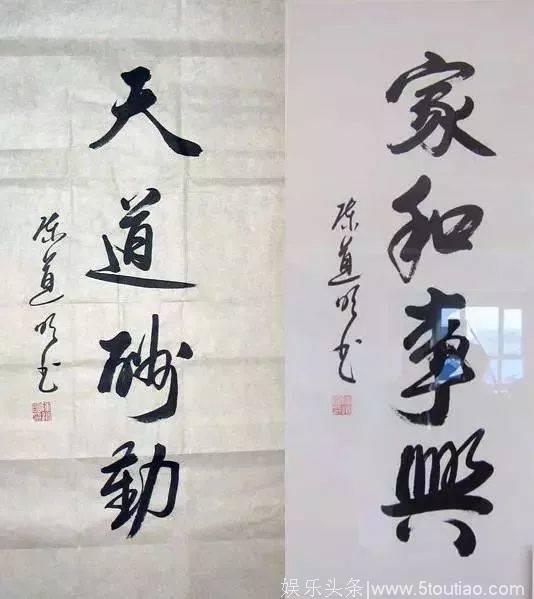 天道酬勤
陈道明书
家和事興
陈道明书
娱乐头条/www.5toutiao.com